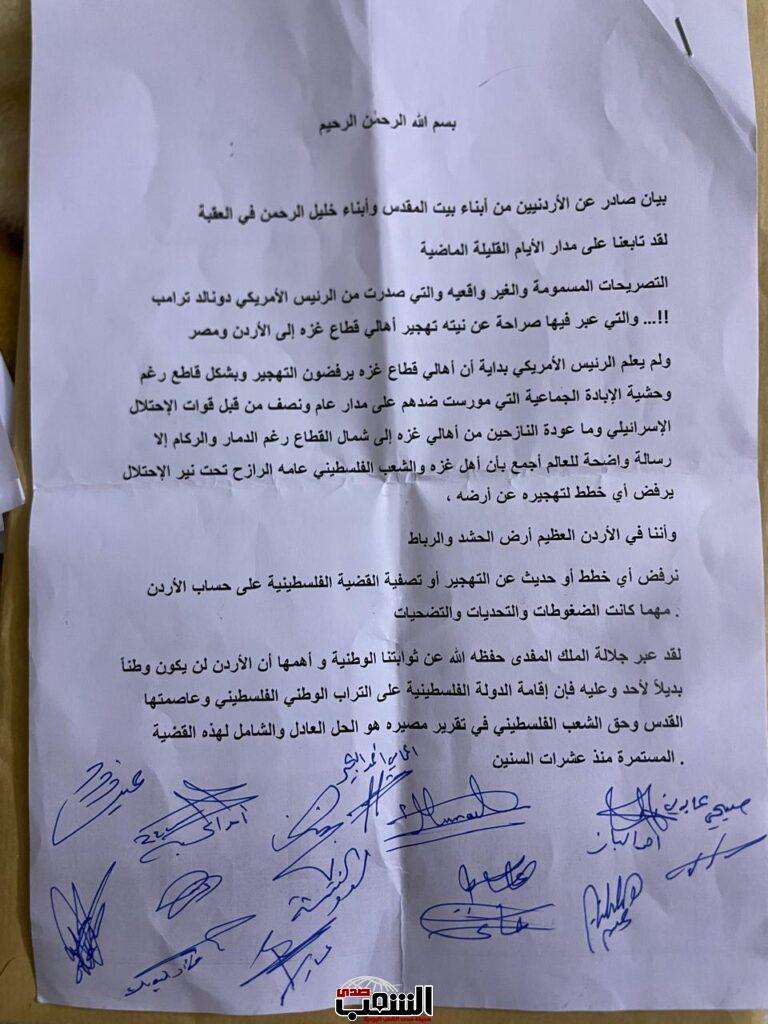 بسم الله الرحمن الرحيم
بيان صادر عن الأردنيين من أبناء بيت المقدس وأبناء خليل الرحمن في العقبة
لقد تابعنا على مدار الأيام القليلة الماضية
التصريحات المسمومة والغير واقعيه والتي صدرت من الرئيس الأمريكي دونالد ترامب
!!... والتي عبر فيها صراحة عن نيته تهجير أهالي قطاع غزه إلى الأردن ومصر
ولم يعلم الرئيس الأمريكي بداية أن أهالي قطاع غزه يرفضون التهجير وبشكل قاطع رغم
وحشية الإبادة الجماعية التي مورست ضدهم على مدار عام ونصف من قبل قوات الإحتلال
الإسرائيلي وما عودة النازحين من أهالي غزه إلى شمال القطاع رغم الدمار والركام إلا
رسالة واضحة للعالم أجمع بأن أهل غزه والشعب الفلسطيني عامه الرازح تحت نير الإحتلال
يرفض أي خطط لتهجيره عن أرضه ،
وأننا في الأردن العظيم أرض الحشد والرباط
نرفض أي خطط أو حديث عن التهجير أو تصفية القضية الفلسطينية على حساب الأردن
. مهما كانت الضغوطات والتحديات والتضحيات
لقد عبر جلالة الملك المفدى حفظه الله عن ثوابتنا الوطنية و أهمها أن الأردن لن يكون وطناً
بديلاً لأحد وعليه فإن إقامة الدولة الفلسطينية على التراب الوطني الفلسطيني وعاصمتها
القدس وحق الشعب الفلسطيني في تقرير مصيره هو الحل العادل والشامل لهذه القضية
. المستمرة منذ عشرات السنين
صدى الشعب